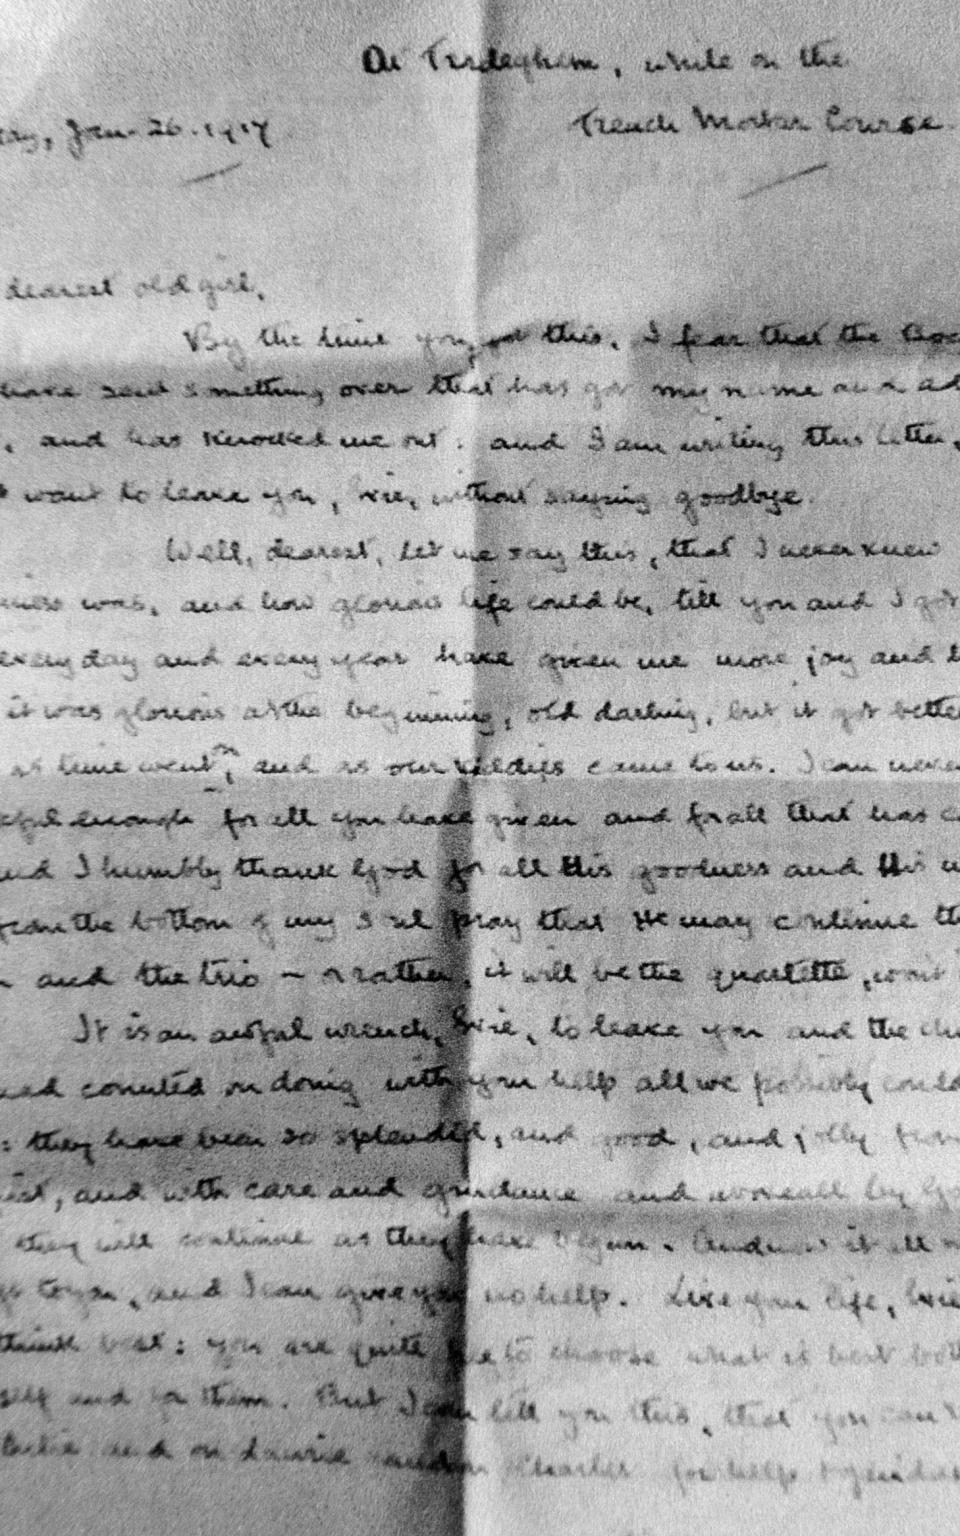 At Tirdeghem, while on the
Jan. 26. 1917
Trench Mortar Course.
dearest old girl,
By the time you get this, I fear that the
have sent something over that has got my name and
, and has knocked me out: and I am writing this letter,
want to leave you, Evie, without saying goodbye.
Well, dearest, let me say this, that I never knew
was, and how glorious life could be, till you and I got
every day and every year have given me more joy and
it was glorious at the beginning, old darling, but it got better
as time went on, and as our kiddies came to us. I can never
enough for all you have given and for all that has
and I humbly thank God for all His goodness and His
from the bottom of my soul pray that He may continue
and the trio - or rather, it will be the quartette, won't
It is an awful wrench, Evie, to leave you and the
counted on doing with your help all we possibly could
: they have been so splendid, and good, and jolly from
, and with care and guidance and above all by
they will continue as they have begun. And now it all
to you, and I can give you no help. Live your life, Evie
think best: you are quite free to choose what is best both
self and for them. But I can tell you this, that you can
and on Laurie and on Charles for help